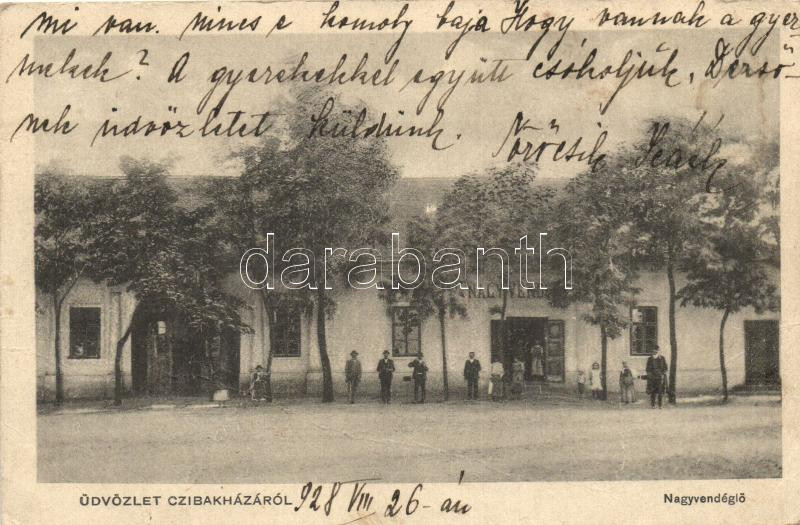 mi van. nincs e komoly baja Hogy vannak a gyer-
mekek? A gyerekekkel együtt csókoljuk. Derső-
nek üdvözletet küldünk. Nörösik
NAGYVENDÉGLŐ
darabanth
ÜDVÖZLET CZIBAKHÁZÁRÓL 928 VIII 26-án Nagyvendéglő